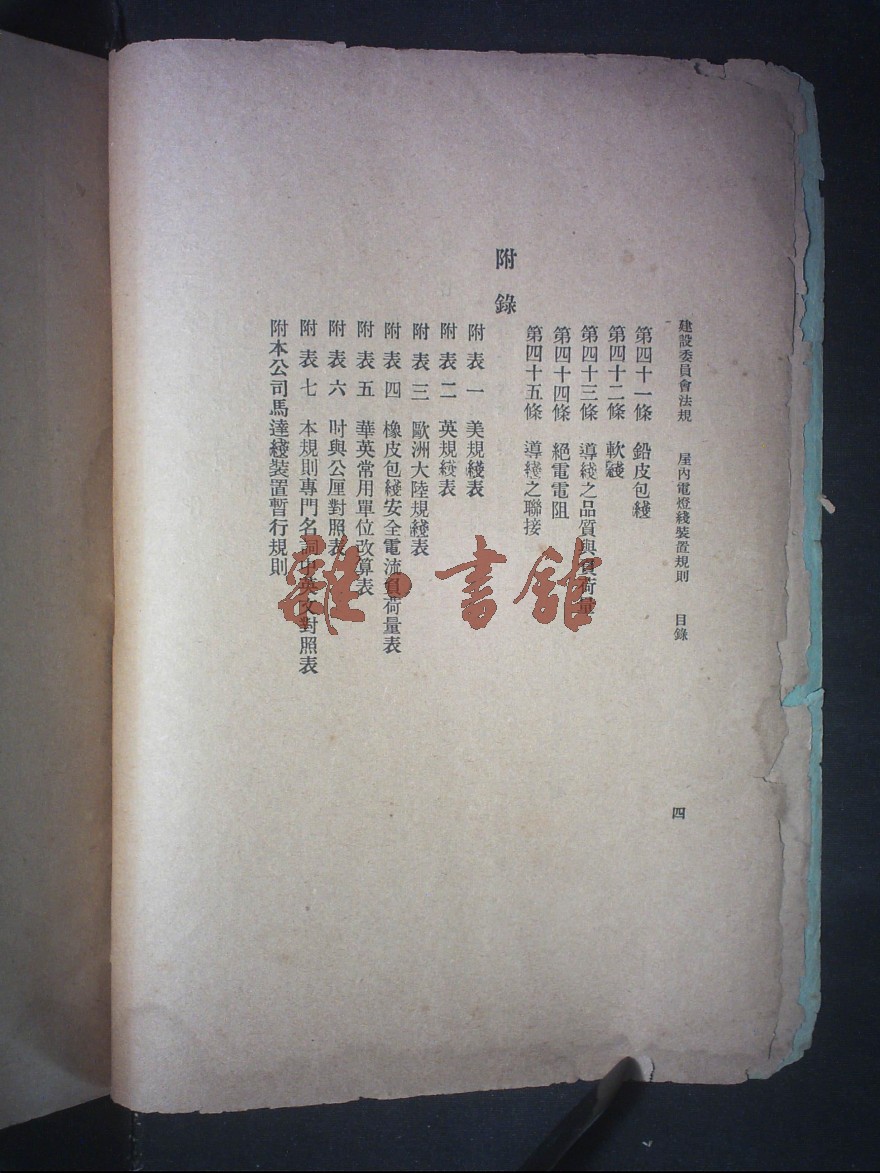 建設委員會法規 屋內電燈綫裝置規則 目錄 四
第四十一條 鉛皮包綫
第四十二條 軟綫
第四十三條 導綫之品質與負荷量
第四十四條 絕電電阻
第四十五條 導綫之聯接
附錄
附表一 美規綫表
附表二 英規綫表
附表三 歐洲大陸規綫表
附表四 橡皮包綫安全電流負荷量表
附表五 華英常用單位改算表
附表六 吋與公厘對照表
附表七 本規則專門名詞中英文對照表
附本公司馬達綫裝置暫行規則
雜·書館